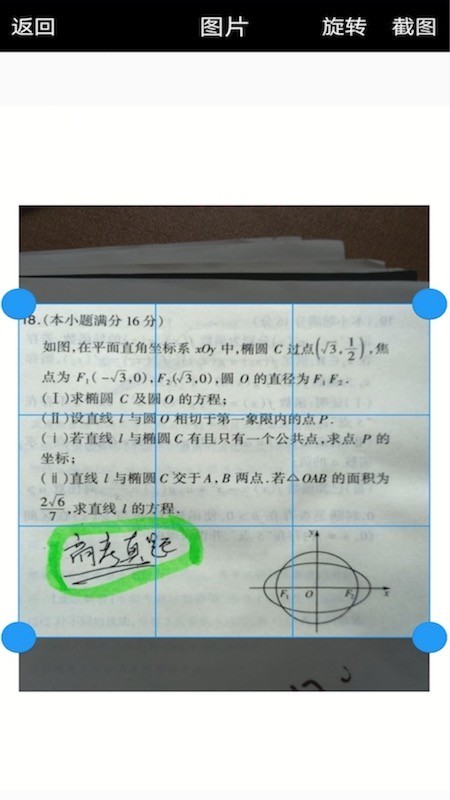 返回 图片 旋转 截图
18.(本小题满分 16 分)
如图,在平面直角坐标系 xOy 中,椭圆 C 过点(√3, 1/2),焦
点为 F₁(-√3,0),F₂(√3,0),圆 O 的直径为 F₁F₂.
(Ⅰ)求椭圆 C 及圆 O 的方程;
(Ⅱ)设直线 l 与圆 O 相切于第一象限内的点 P.
(ⅰ)若直线 l 与椭圆 C 有且只有一个公共点,求点 P 的
坐标;
(ⅱ)直线 l 与椭圆 C 交于 A,B 两点.若△OAB 的面积为
2√6/7,求直线 l 的方程.
高考真题
y
F₁ O F₂ x